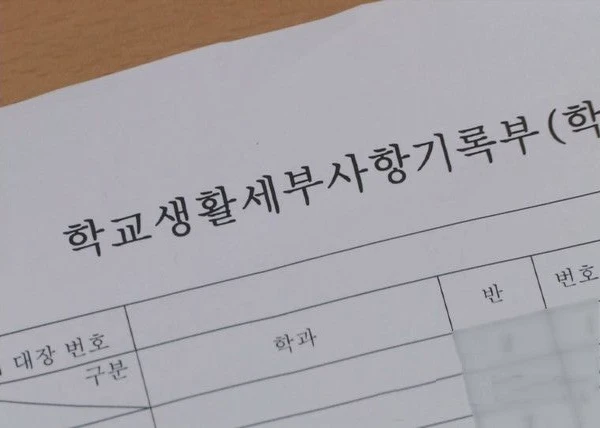 학교생활세부사항기록부(학
대장 번호
구분
학과
반
번호